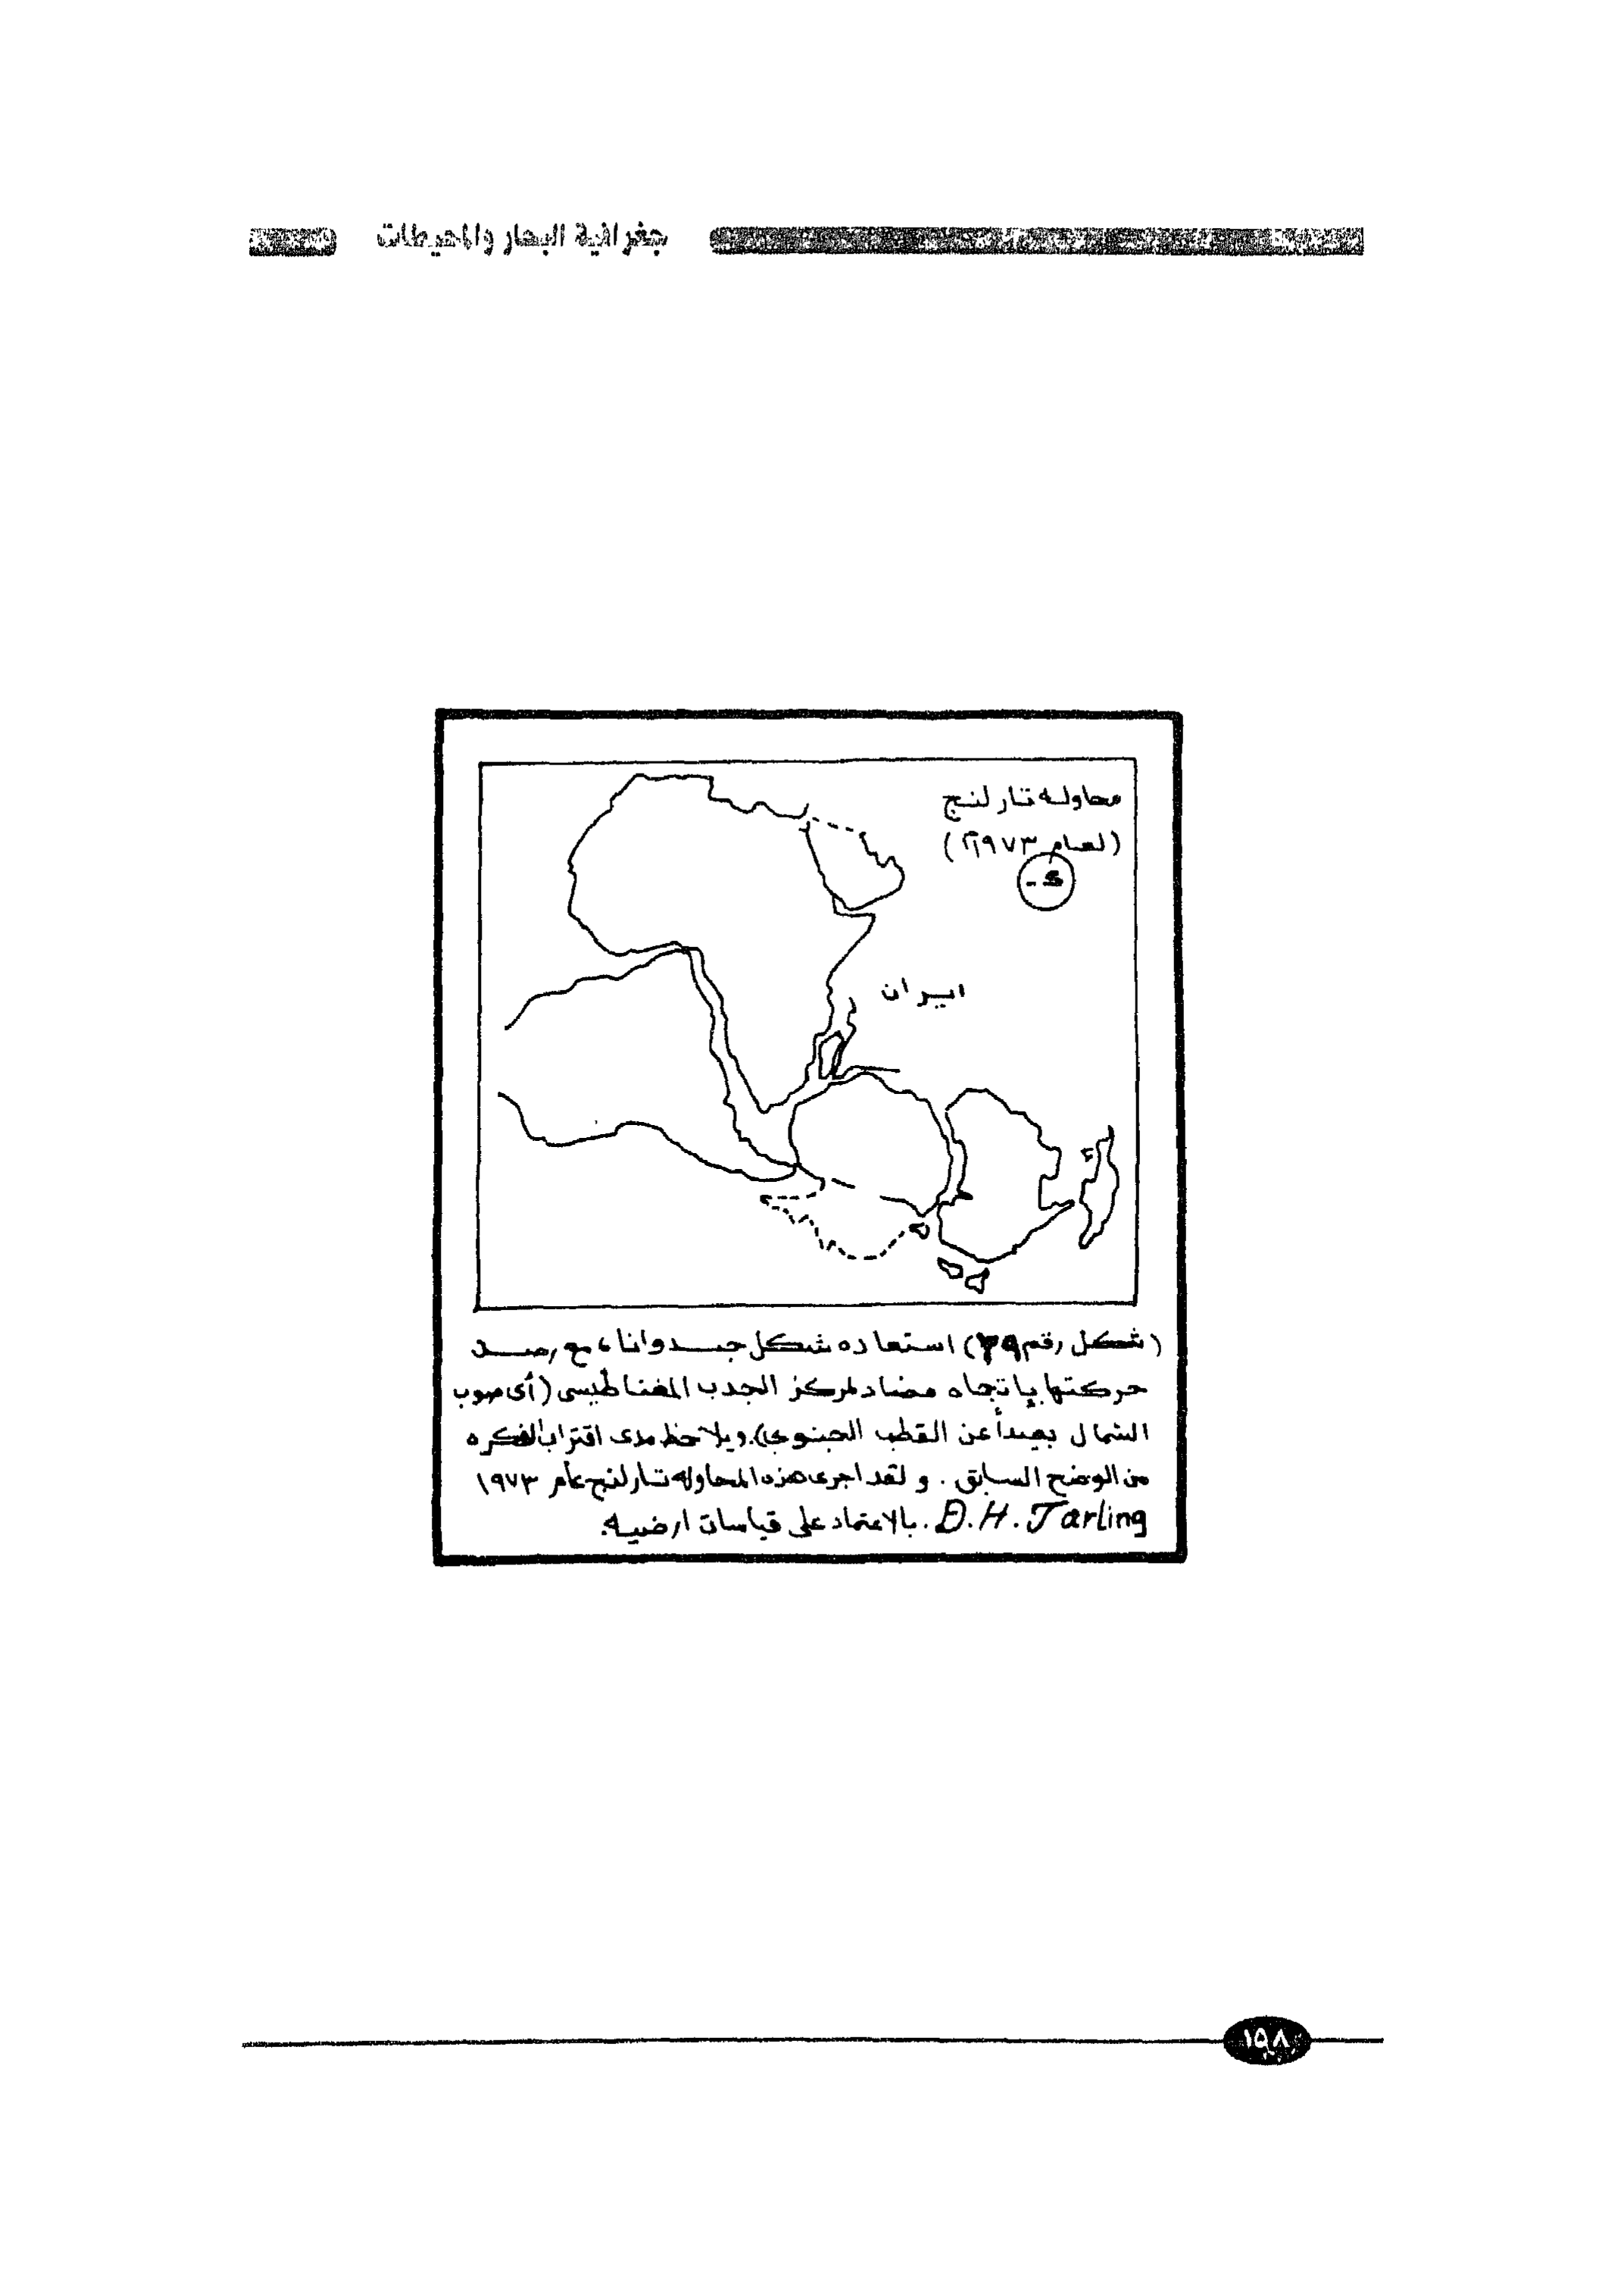 جغرافية البحار والمحيطات
محاوله تارلنج
(لعام ١٩٧٣م)
ايران
(شكل رقم ٣٩) استعاده شكل جبدوانا، مع رصد
حركتها بإتجاه مضاد لمركز الجدب المغناطيسى (أى صوب
الشمال بعيداً عن القطب الجنوبى). ويلاحظ مدى اقتراب الفكره
من الوضع السابق . و لقد اجرى هذه المحاوله تارلنج عام ١٩٧٣
D.H.Tarling . بالاعتماد على قياسات ارضيه.
١٥٨